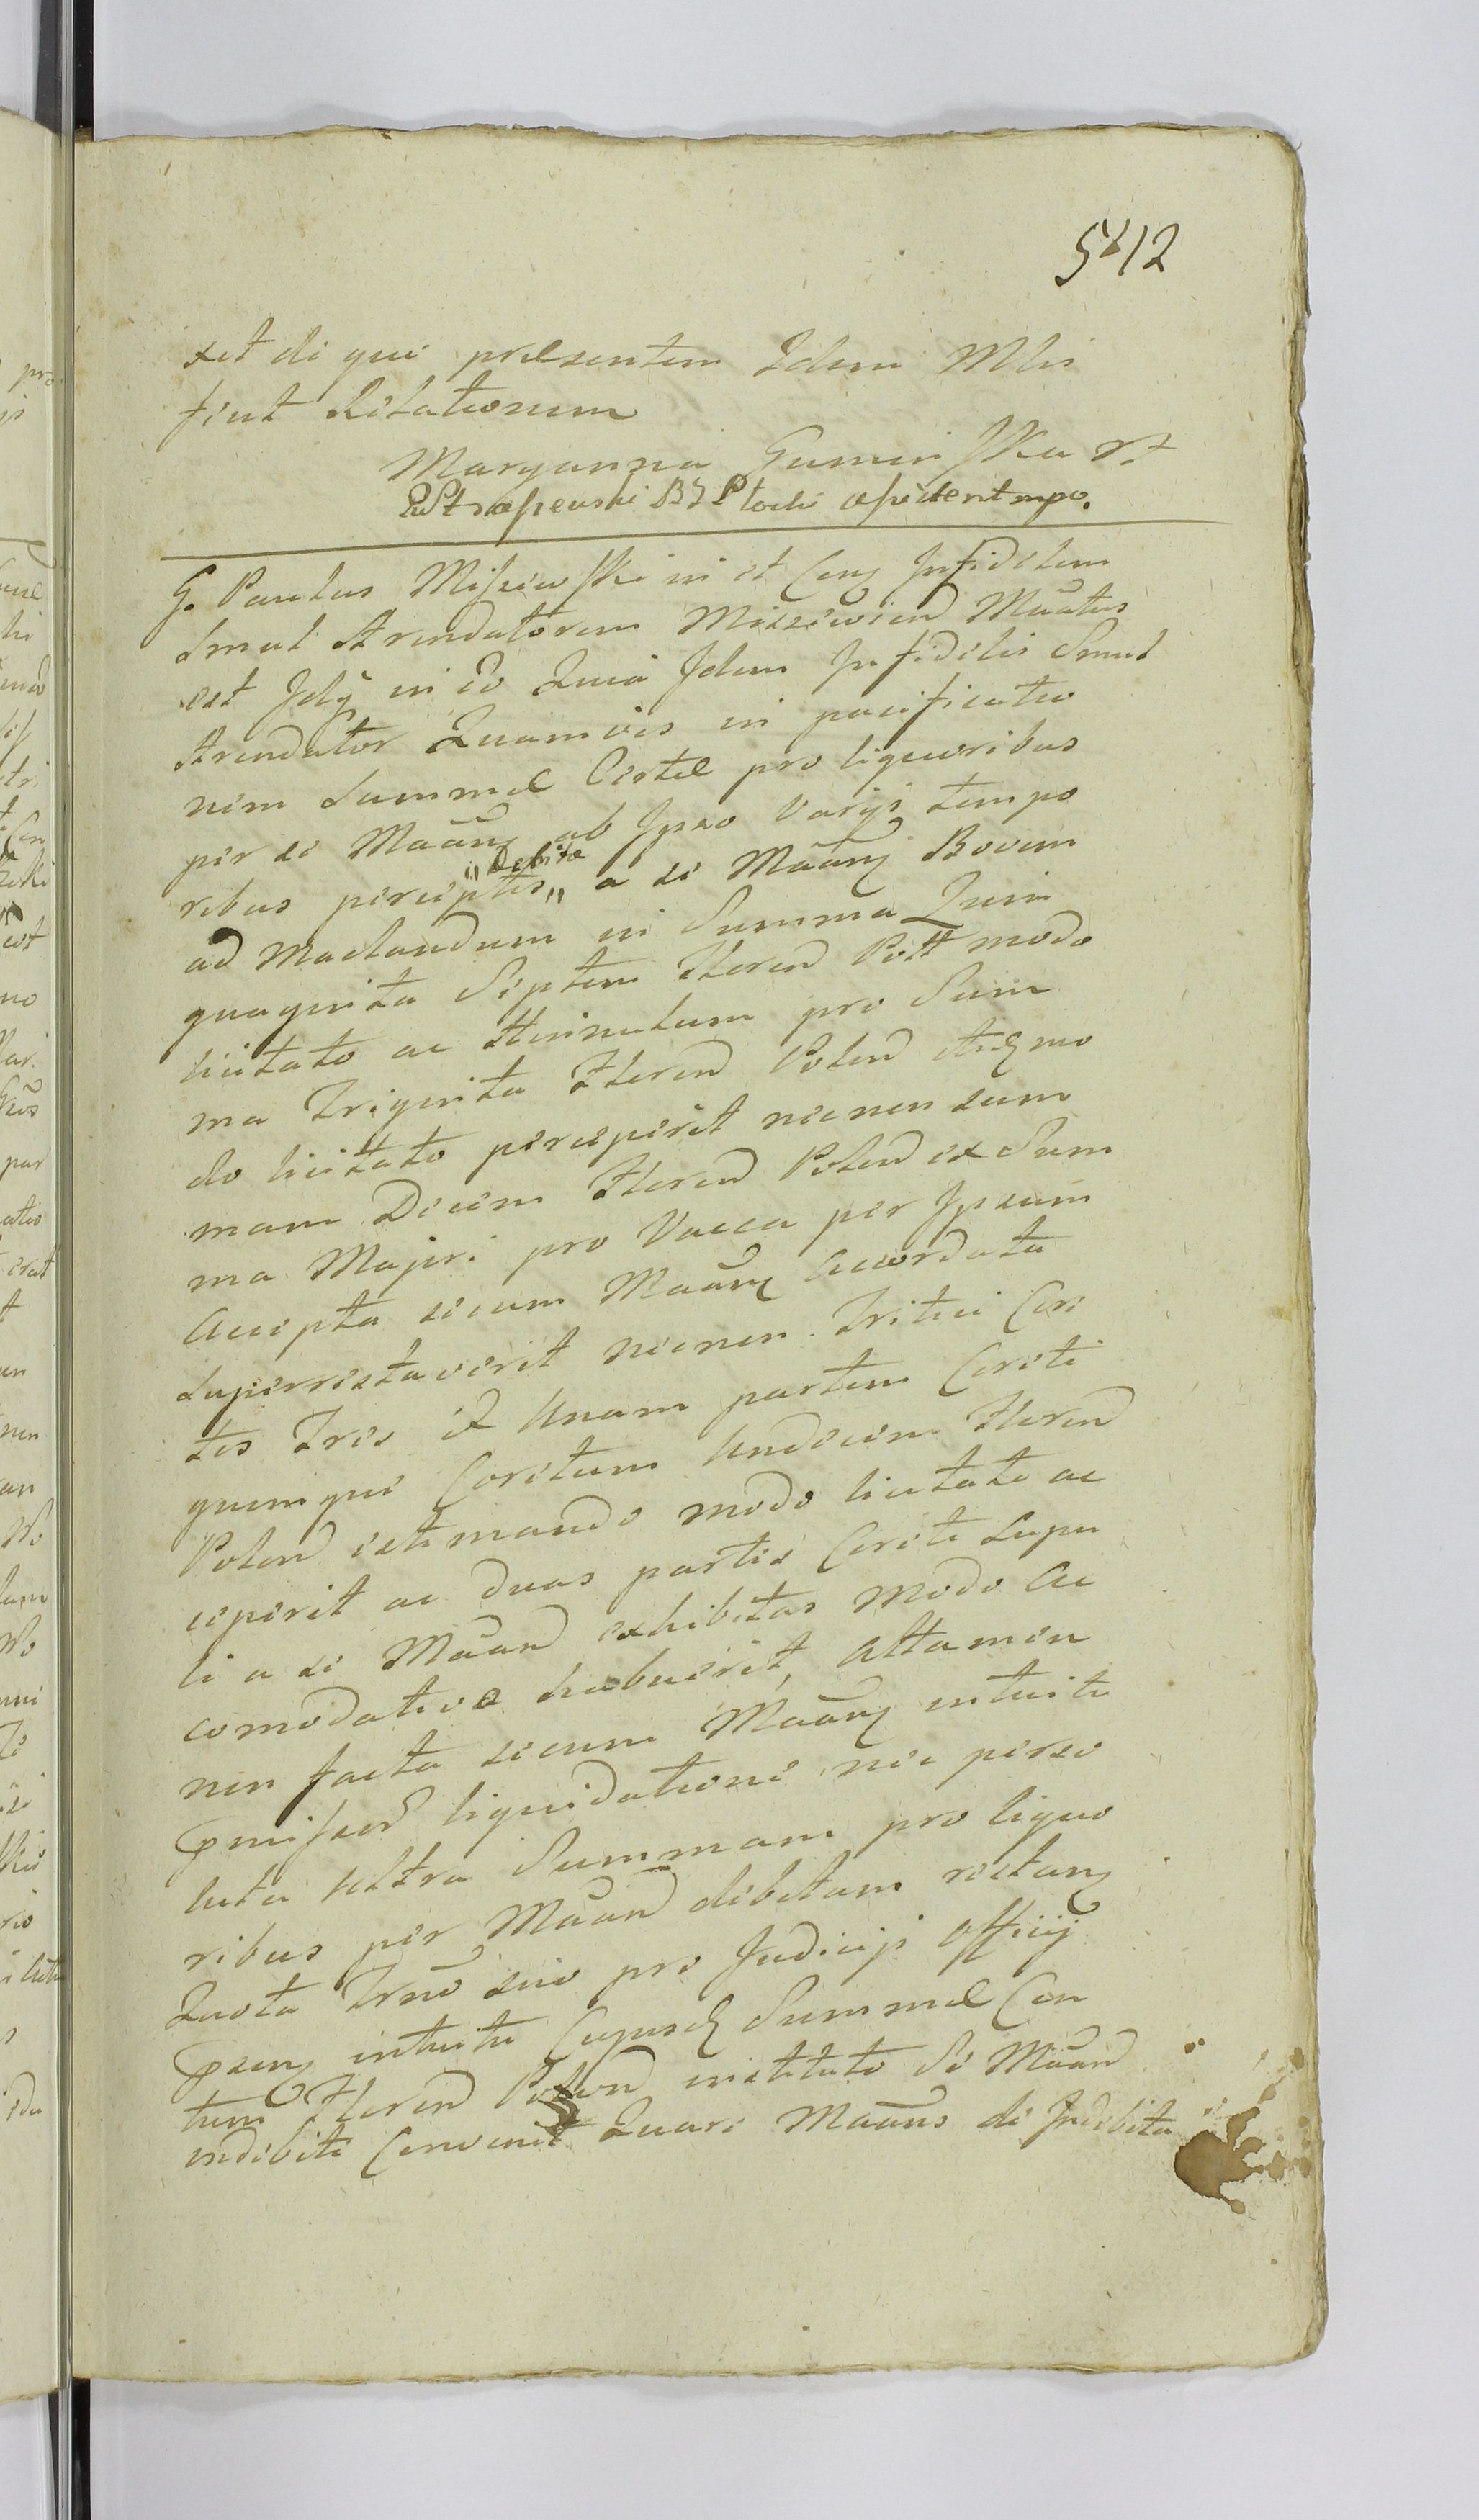 5412
xit de qui praesentem Idem Mlis
ficit Citationem
Maryanna Guminska
Płocki assidentt mpo.
G. Paulus Misżewski in et Cong Infidelem
Smul Arendatorem Miszewien Maãtus
est Jdq in eo Quia Idem Infidelis Smul
Arendator Quamvis in pacificatio
nem Summae Certae pro liquoribus
per se Maãng ab Ipso varijs tempo
ribus perceptis „Debitae„ a se Maãng Bovem
ad Mactandum in Summa Quin
quaginta Septem floren Poll modo
licitato ac Hinnulum pro Sum
ma Triginta floren Polon mo
do licitato perceperit necnon sum
mam Decem floren Polon ex Sum
ma Majori pro Vacca per Ipsum
Accepta secum Maãng Accordata
Superrestaverit necnon Tritici Core
tos Tres et Unam partem Coreti
quemque Coretum Undecim floren
Polon estimando modo licitato ac
ceperit ac duas partes Coreti Lupu
li a se Maãn exhibitas modo Ac
comodativo habuerit, Attamen
non facta secum Maãng intuitu
pmissor liquidatione nec perso
luta Ultra Summam pro liquo
ribus per Maãn debitam restang
Quota Trno suo pro Judicijs Officij
pseng intuitu Cujusd Summae Cen
tum floren Polon instituto Se Maãn
indebite Convenit Quare Maãns de Indebita